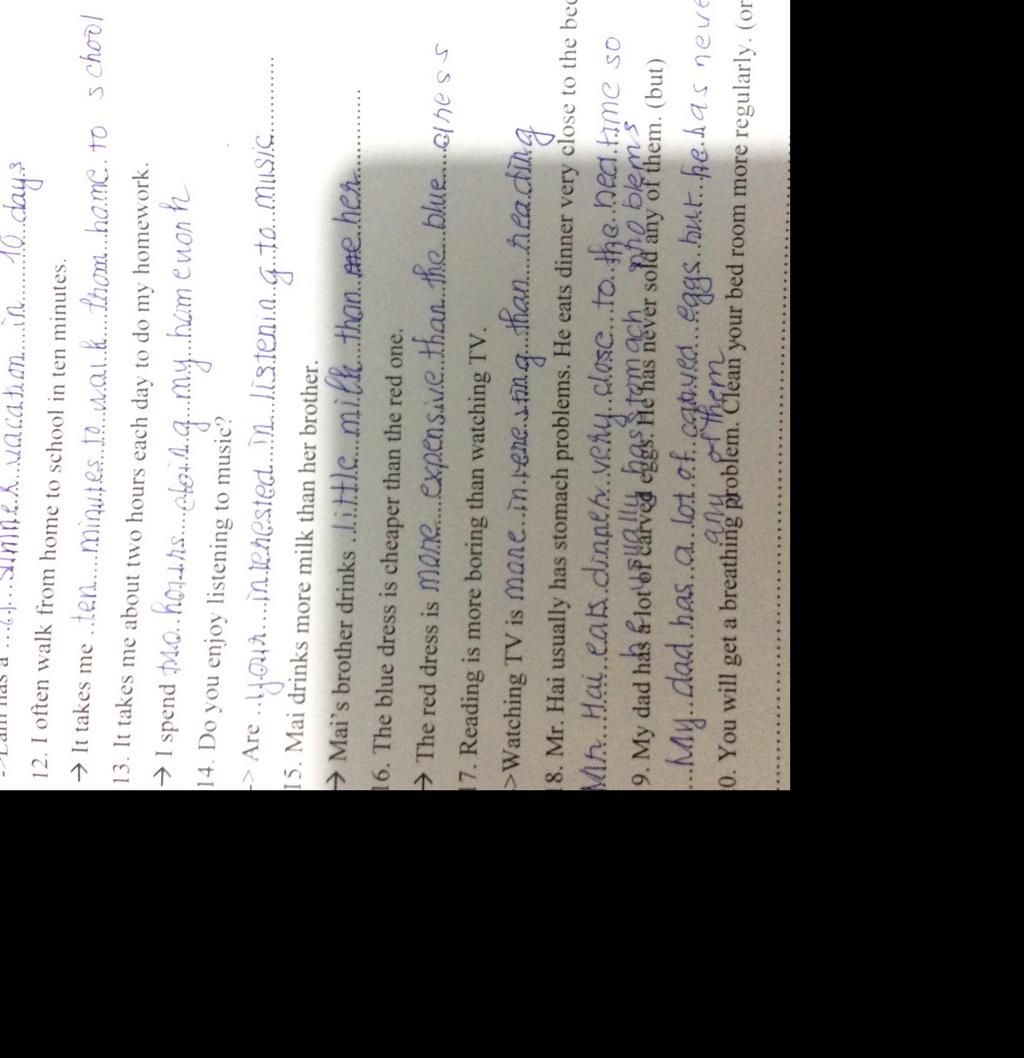 ->Lan has a ... summer vacation in ....... 10 days
12. I often walk from home to school in ten minutes.
→ It takes me ..ten....minutes to walk....from...home to school
13. It takes me about two hours each day to do my homework.
→ I spend two hours....doing...my homeworh
14. Do you enjoy listening to music?
-> Are ...your....interested...in..listening to music............
15. Mai drinks more milk than her brother.
→ Mai's brother drinks ..little...milk than her............
16. The blue dress is cheaper than the red one.
→ The red dress is more....expensive than the blue....dress
17. Reading is more boring than watching TV.
->Watching TV is more interesting than reading
18. Mr. Hai usually has stomach problems. He eats dinner very close to the bed
Mr. Hai eats dinner very close to the bed time so
he usually has stomach problems
19. My dad has a lot of carved eggs. He has never sold any of them. (but)
....My...dad has a lot of carved eggs but he has neve
any of them
20. You will get a breathing problem. Clean your bed room more regularly. (or